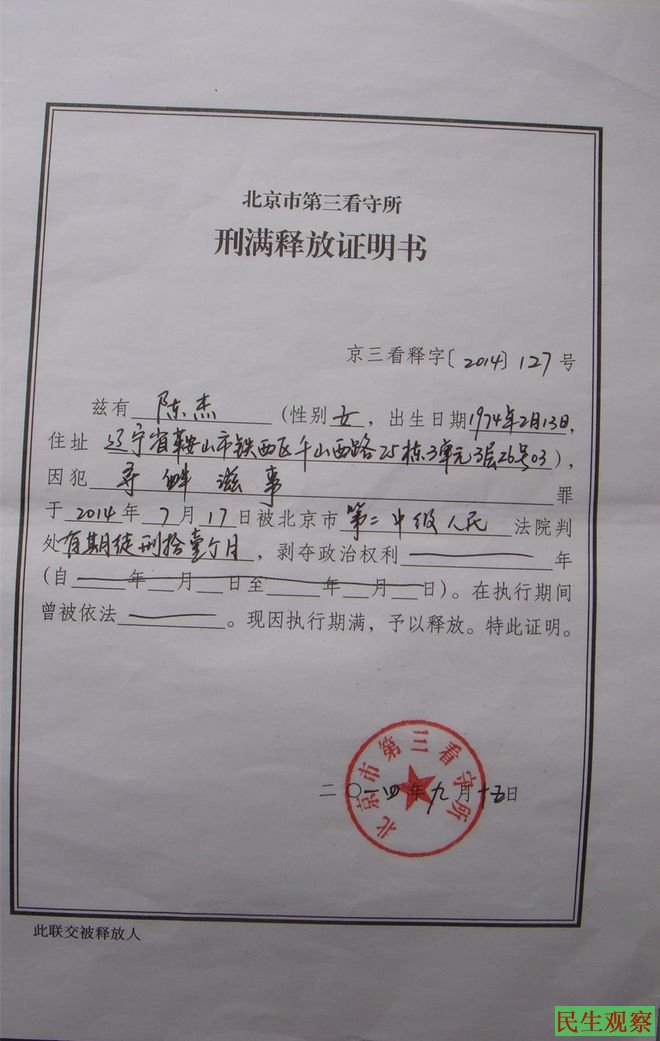 北京市第三看守所
刑满释放证明书
京三看释字〔2014〕127号
兹有 陈杰 (性别女,出生日期1974年2月13日,
住址 辽宁省鞍山市铁西区千山西路25栋3单元3层26号03),
因犯 寻衅滋事 罪
于2014年7月17日被北京市第二中级人民法院判
处有期徒刑拾壹个月,剥夺政治权利 年
(自 年 月 日至 年 月 日)。在执行期间
曾被依法 。现因执行期满,予以释放。特此证明。
北京市第三看守所
二〇一四年九月十五日
此联交被释放人
民生观察